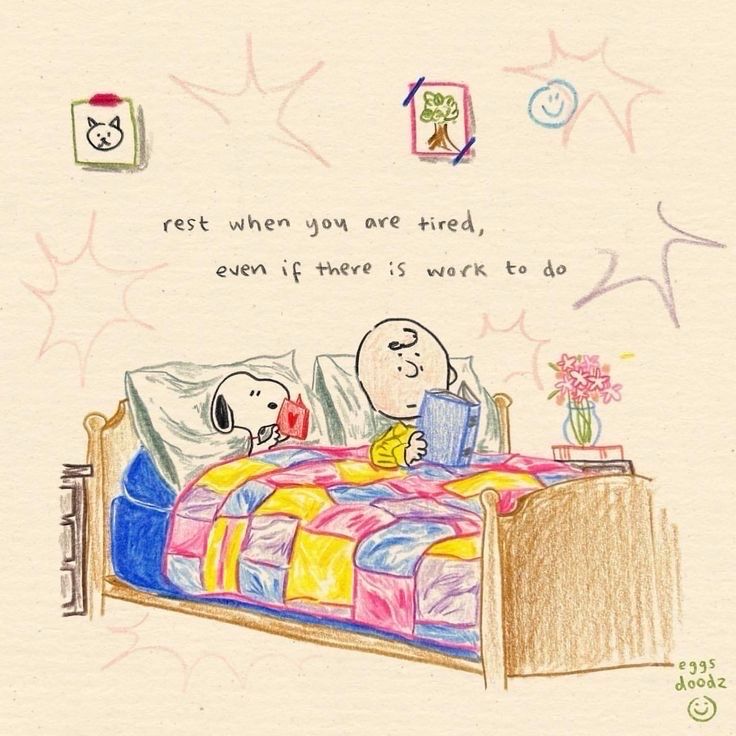 rest when you are tired,
even if there is work to do
eggs
doodz